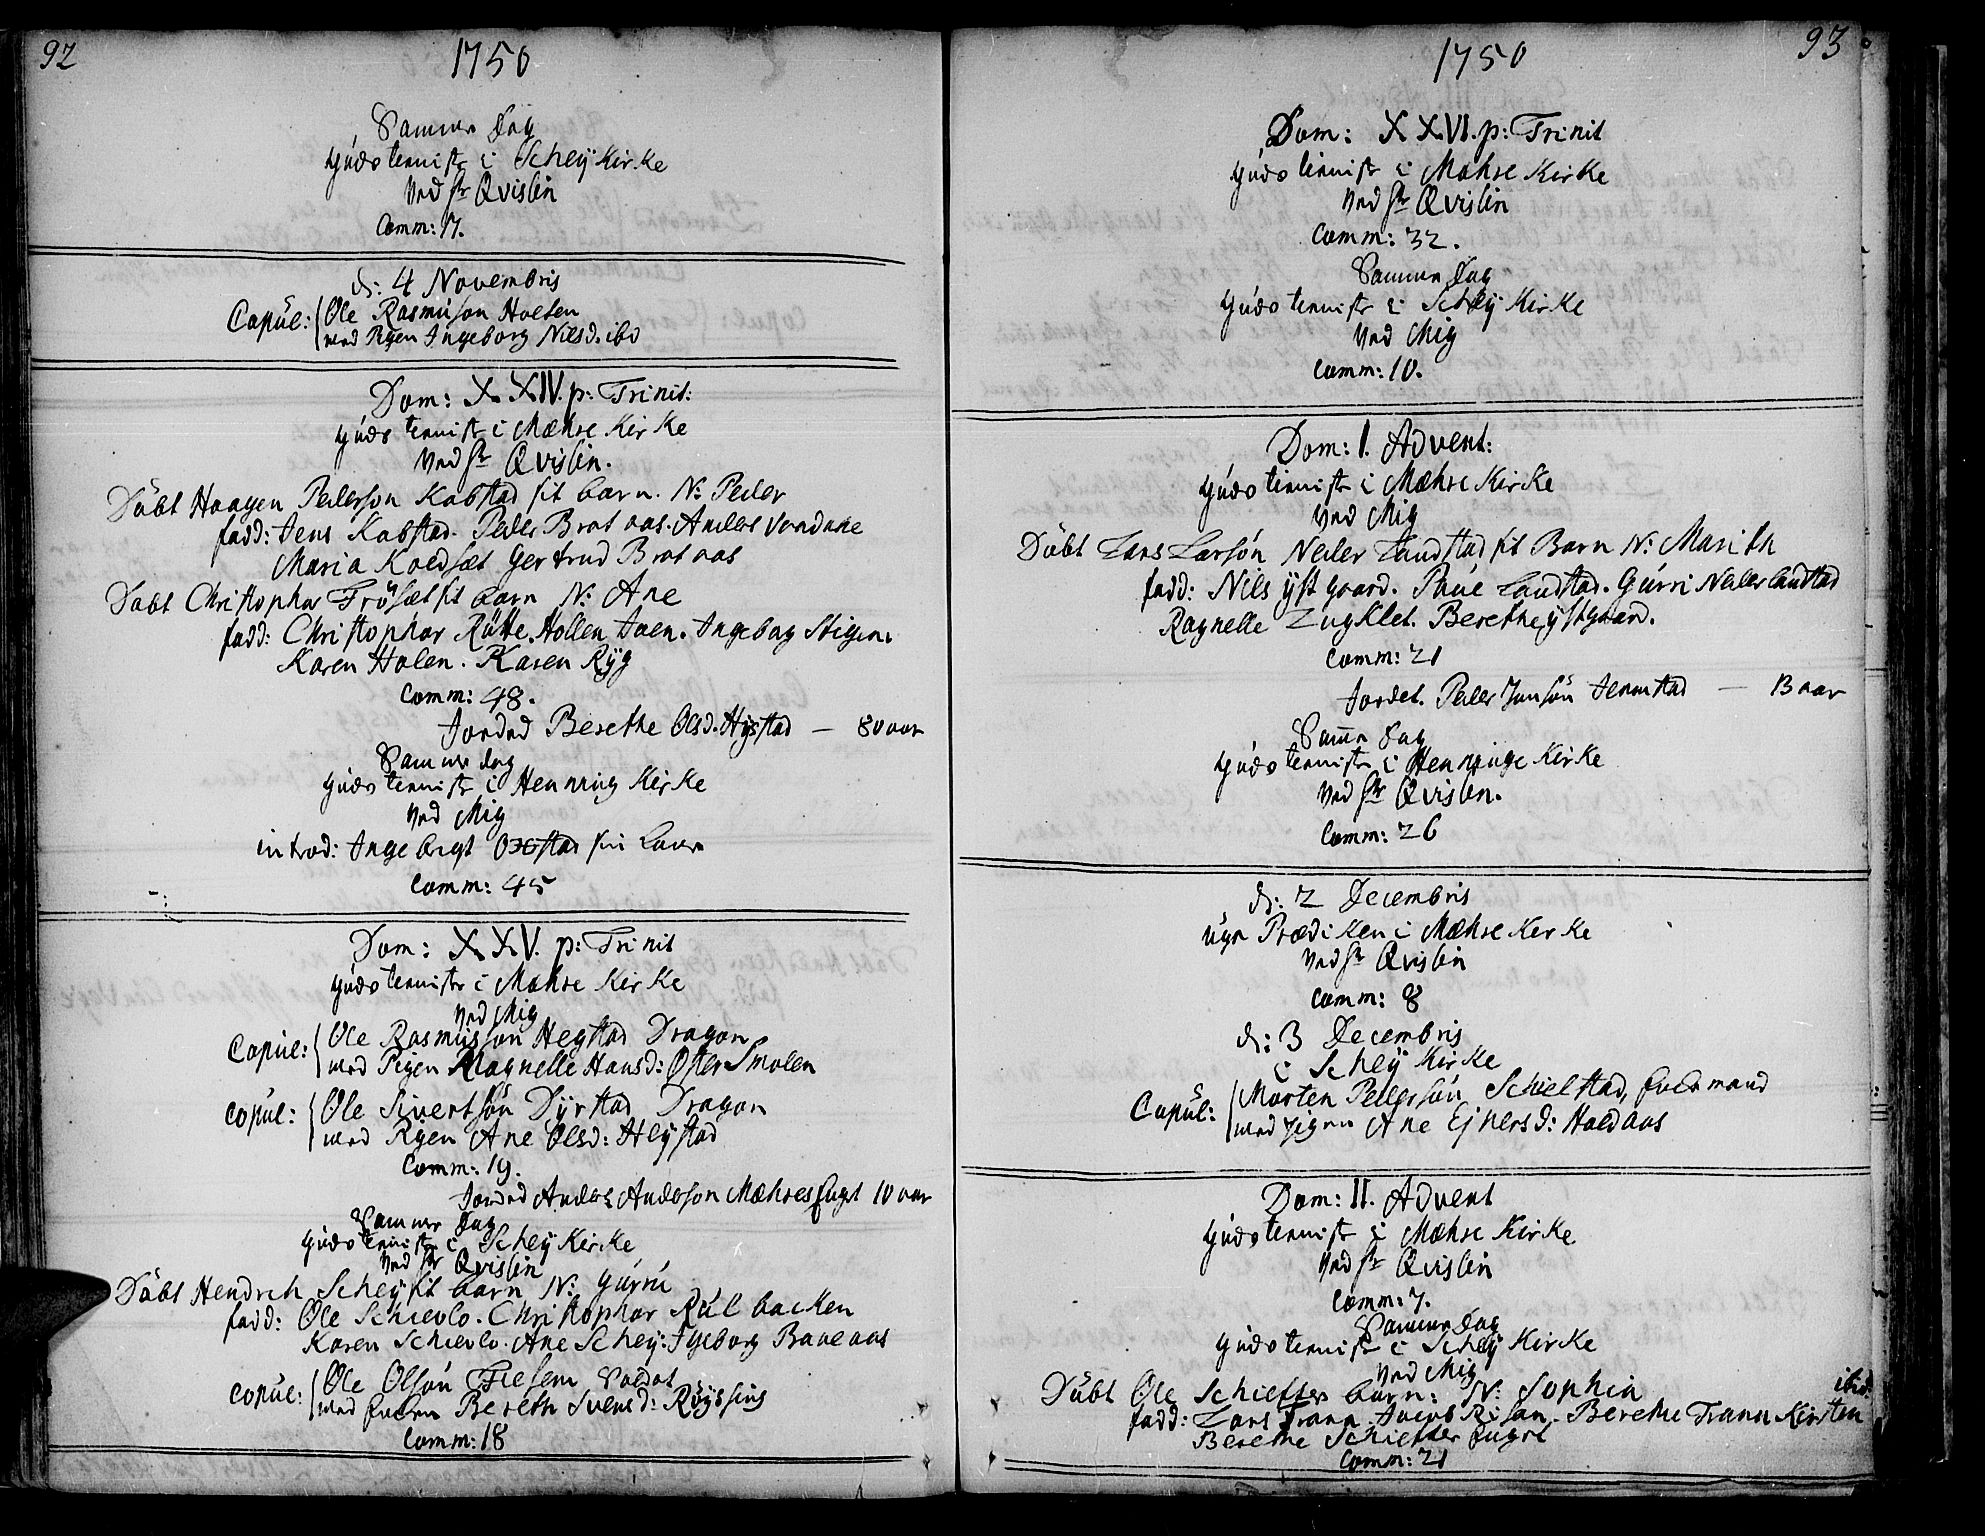 92
1750
Samme Dag
Gudstenistr i Scheÿ Kirke
Ved Hr Qvislin
Comm: 7.
d: 4 Novembris
Copúl: Ole Rasmúson Holten
med Pigen Ingeborg Nilsd. ibd
Dom: XXIV. p: Trinit:
Gudstenistr i Mæhre Kirke
Ved Hr Qvislin.
Döbt Haagen Pederson Kabstad sit barn. N: Peder
fadd: Jens Kabstad. Peder Brataas. Anders
Maria Koldsæt Gertrud Brataas
Döbt Christopher Frösæt sit barn N: Ane
fadd: Christopher Rötte. Hollen Ingebaag Stigen.
Karen Holen. Karen Rÿg
Comm: 48.
Jorded Berethe Olsd. Hÿstad — 80 aar
Samme dag
Gudstenistr i Henning Kirke
Ved Mig
introd: Ingebrigt
Comm: 45
Dom: XXV. p: Trinit
Gudstenistr i Mæhre Kirke
Ved Mig
Copúl: Ole Rasmússon Hegstad Dragon
med Pigen Magnelle Hansd: Øster Smolen
Copúl: Ole Sivertsön Dÿrstad Dragon
med Pigen Ane Olsd: Heÿstad
Comm: 19.
Jorded Anders Anderson Mæhres 10 aar
Samme Dag
Gudstenistr i Scheÿ Kirke
Ved Hr Qvislin
Döbt Hendrch Scheÿ sit barn N: Gúrrú
fadd: Ole Schievlo. Christopher Rúlbacken
Karen Schievlo. Ane Scheÿ. Igeborg Baneaas
Copúl: Ole Olsón Fiesem Soldat
med Enken Bereth Svensd: Röÿssing
Comm: 18
93
1750
Dom: XXVI. p: Trinit
Gudstenistr i Mæhre Kirke
Ved Hr Qvislin
Comm: 32.
Samme Dag
Gudstenistr i Scheÿ Kirke
Ved Mig
Comm: 10.
Dom: I. Advent:
Gudstenistr i Mæhre Kirke
Ved Mig
Döbt Lars Larsón Neder Landstad sit Barn N: Marith
fadd: Nils ÿstgaard. Paúe Landstad. Gúrri Nederlandstad
Ragnelle Lugklet. Berethe ÿstgaard.
Comm: 21
Jordet. Peder Jonsön Jermstad — 13 aar
Samme Dag
Gudstenistr i Henninge Kirke
Ved Hr Qvislin.
Comm: 26
d: 2 Decembris
Uge Prædiken i Mæhre Kirke
Ved Hr Qvislin
Comm: 8
d: 3 Decembris
i Scheÿ Kirke
Copúl: Morten Pedersön Schielstad, Enckemand
med Pigen Ane Ejnersd: Haldaas
Dom: II. Advent
Gudstenistr i Mæhre Kirke
Ved Hr Qvislin
Comm: 7.
Samme Dag
Gudstenistr i Scheÿ Kirke
Ved Mig
Döbt Ole Schiefter barn: N: Sophia
fadd: Lars Trana. Jacob Risan. Berethe Trana Kirsten ibid.
Berethe Schiefter
Comm: 21